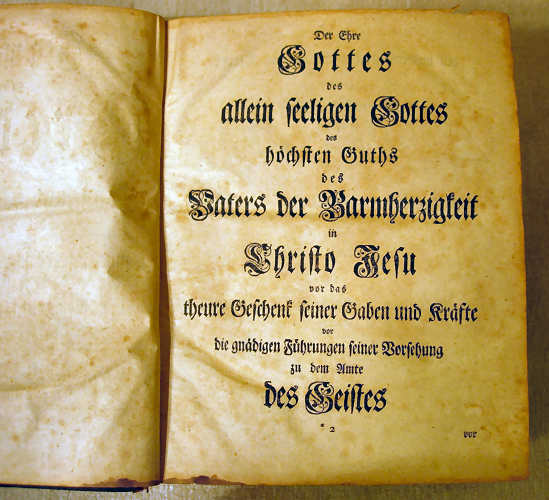 Der Ehre
Gottes
des
allein seeligen Gottes
des
höchsten Guths
des
Vaters der Barmherzigkeit
in
Christo Jesu
vor das
theure Geschenk seiner Gaben und Kräfte
vor
die gnädigen Führungen seiner Vorsehung
zu dem Amte
des Geistes
* 2
vor